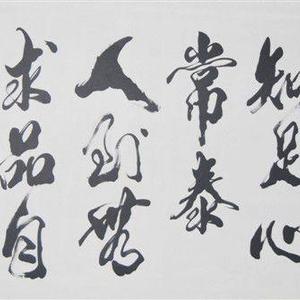 知足心
常泰
人到無
求品自